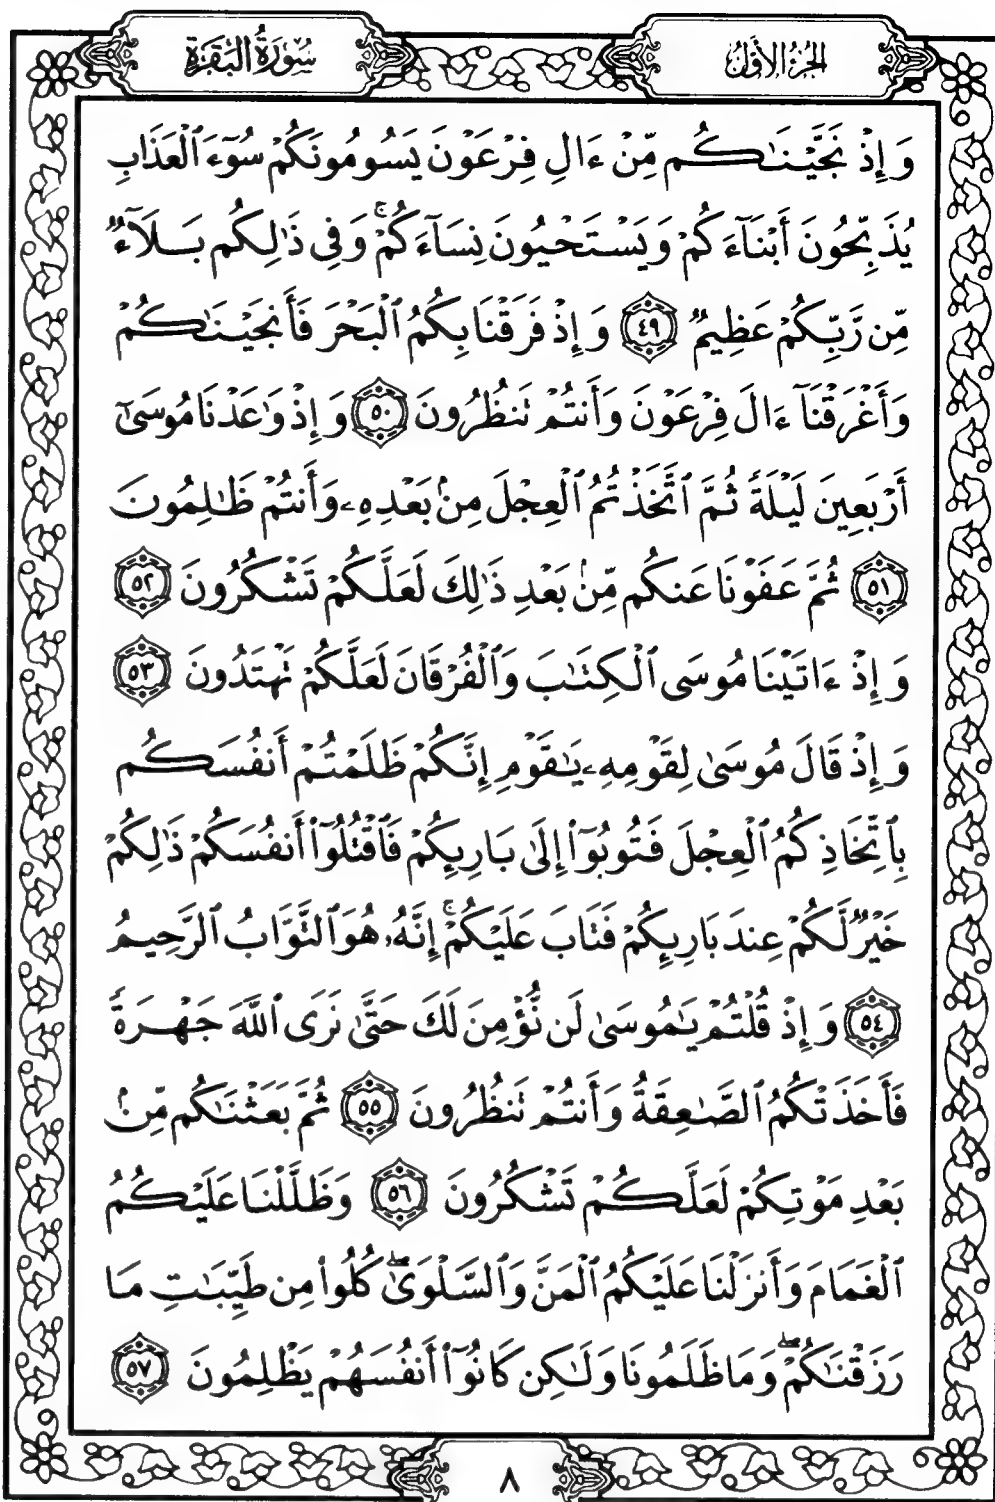 الجُزْءُ الأَوَّلُ
سُورَةُ البَقَرَةِ
وَإِذْ نَجَّيْنَٰكُم مِّنْ ءَالِ فِرْعَوْنَ يَسُومُونَكُمْ سُوٓءَ ٱلْعَذَابِ
يُذَبِّحُونَ أَبْنَآءَكُمْ وَيَسْتَحْيُونَ نِسَآءَكُمْ ۚ وَفِى ذَٰلِكُم بَلَآءٌ
مِّن رَّبِّكُمْ عَظِيمٌ ٤٩ وَإِذْ فَرَقْنَا بِكُمُ ٱلْبَحْرَ فَأَنجَيْنَٰكُمْ
وَأَغْرَقْنَآ ءَالَ فِرْعَوْنَ وَأَنتُمْ تَنظُرُونَ ٥٠ وَإِذْ وَٰعَدْنَا مُوسَىٰٓ
أَرْبَعِينَ لَيْلَةً ثُمَّ ٱتَّخَذْتُمُ ٱلْعِجْلَ مِنۢ بَعْدِهِۦ وَأَنتُمْ ظَٰلِمُونَ
٥١ ثُمَّ عَفَوْنَا عَنكُم مِّنۢ بَعْدِ ذَٰلِكَ لَعَلَّكُمْ تَشْكُرُونَ ٥٢
وَإِذْ ءَاتَيْنَا مُوسَى ٱلْكِتَٰبَ وَٱلْفُرْقَانَ لَعَلَّكُمْ تَهْتَدُونَ ٥٣
وَإِذْ قَالَ مُوسَىٰ لِقَوْمِهِۦ يَٰقَوْمِ إِنَّكُمْ ظَلَمْتُمْ أَنفُسَكُم
بِٱتِّخَاذِكُمُ ٱلْعِجْلَ فَتُوبُوٓا۟ إِلَىٰ بَارِئِكُمْ فَٱقْتُلُوٓا۟ أَنفُسَكُمْ ذَٰلِكُمْ
خَيْرٌ لَّكُمْ عِندَ بَارِئِكُمْ فَتَابَ عَلَيْكُمْ ۚ إِنَّهُۥ هُوَ ٱلتَّوَّابُ ٱلرَّحِيمُ
٥٤ وَإِذْ قُلْتُمْ يَٰمُوسَىٰ لَن نُّؤْمِنَ لَكَ حَتَّىٰ نَرَى ٱللَّهَ جَهْرَةً
فَأَخَذَتْكُمُ ٱلصَّٰعِقَةُ وَأَنتُمْ تَنظُرُونَ ٥٥ ثُمَّ بَعَثْنَٰكُم مِّنۢ
بَعْدِ مَوْتِكُمْ لَعَلَّكُمْ تَشْكُرُونَ ٥٦ وَظَلَّلْنَا عَلَيْكُمُ
ٱلْغَمَامَ وَأَنزَلْنَا عَلَيْكُمُ ٱلْمَنَّ وَٱلسَّلْوَىٰ ۖ كُلُوا۟ مِن طَيِّبَٰتِ مَا
رَزَقْنَٰكُمْ ۖ وَمَا ظَلَمُونَا وَلَٰكِن كَانُوٓا۟ أَنفُسَهُمْ يَظْلِمُونَ ٥٧
٨